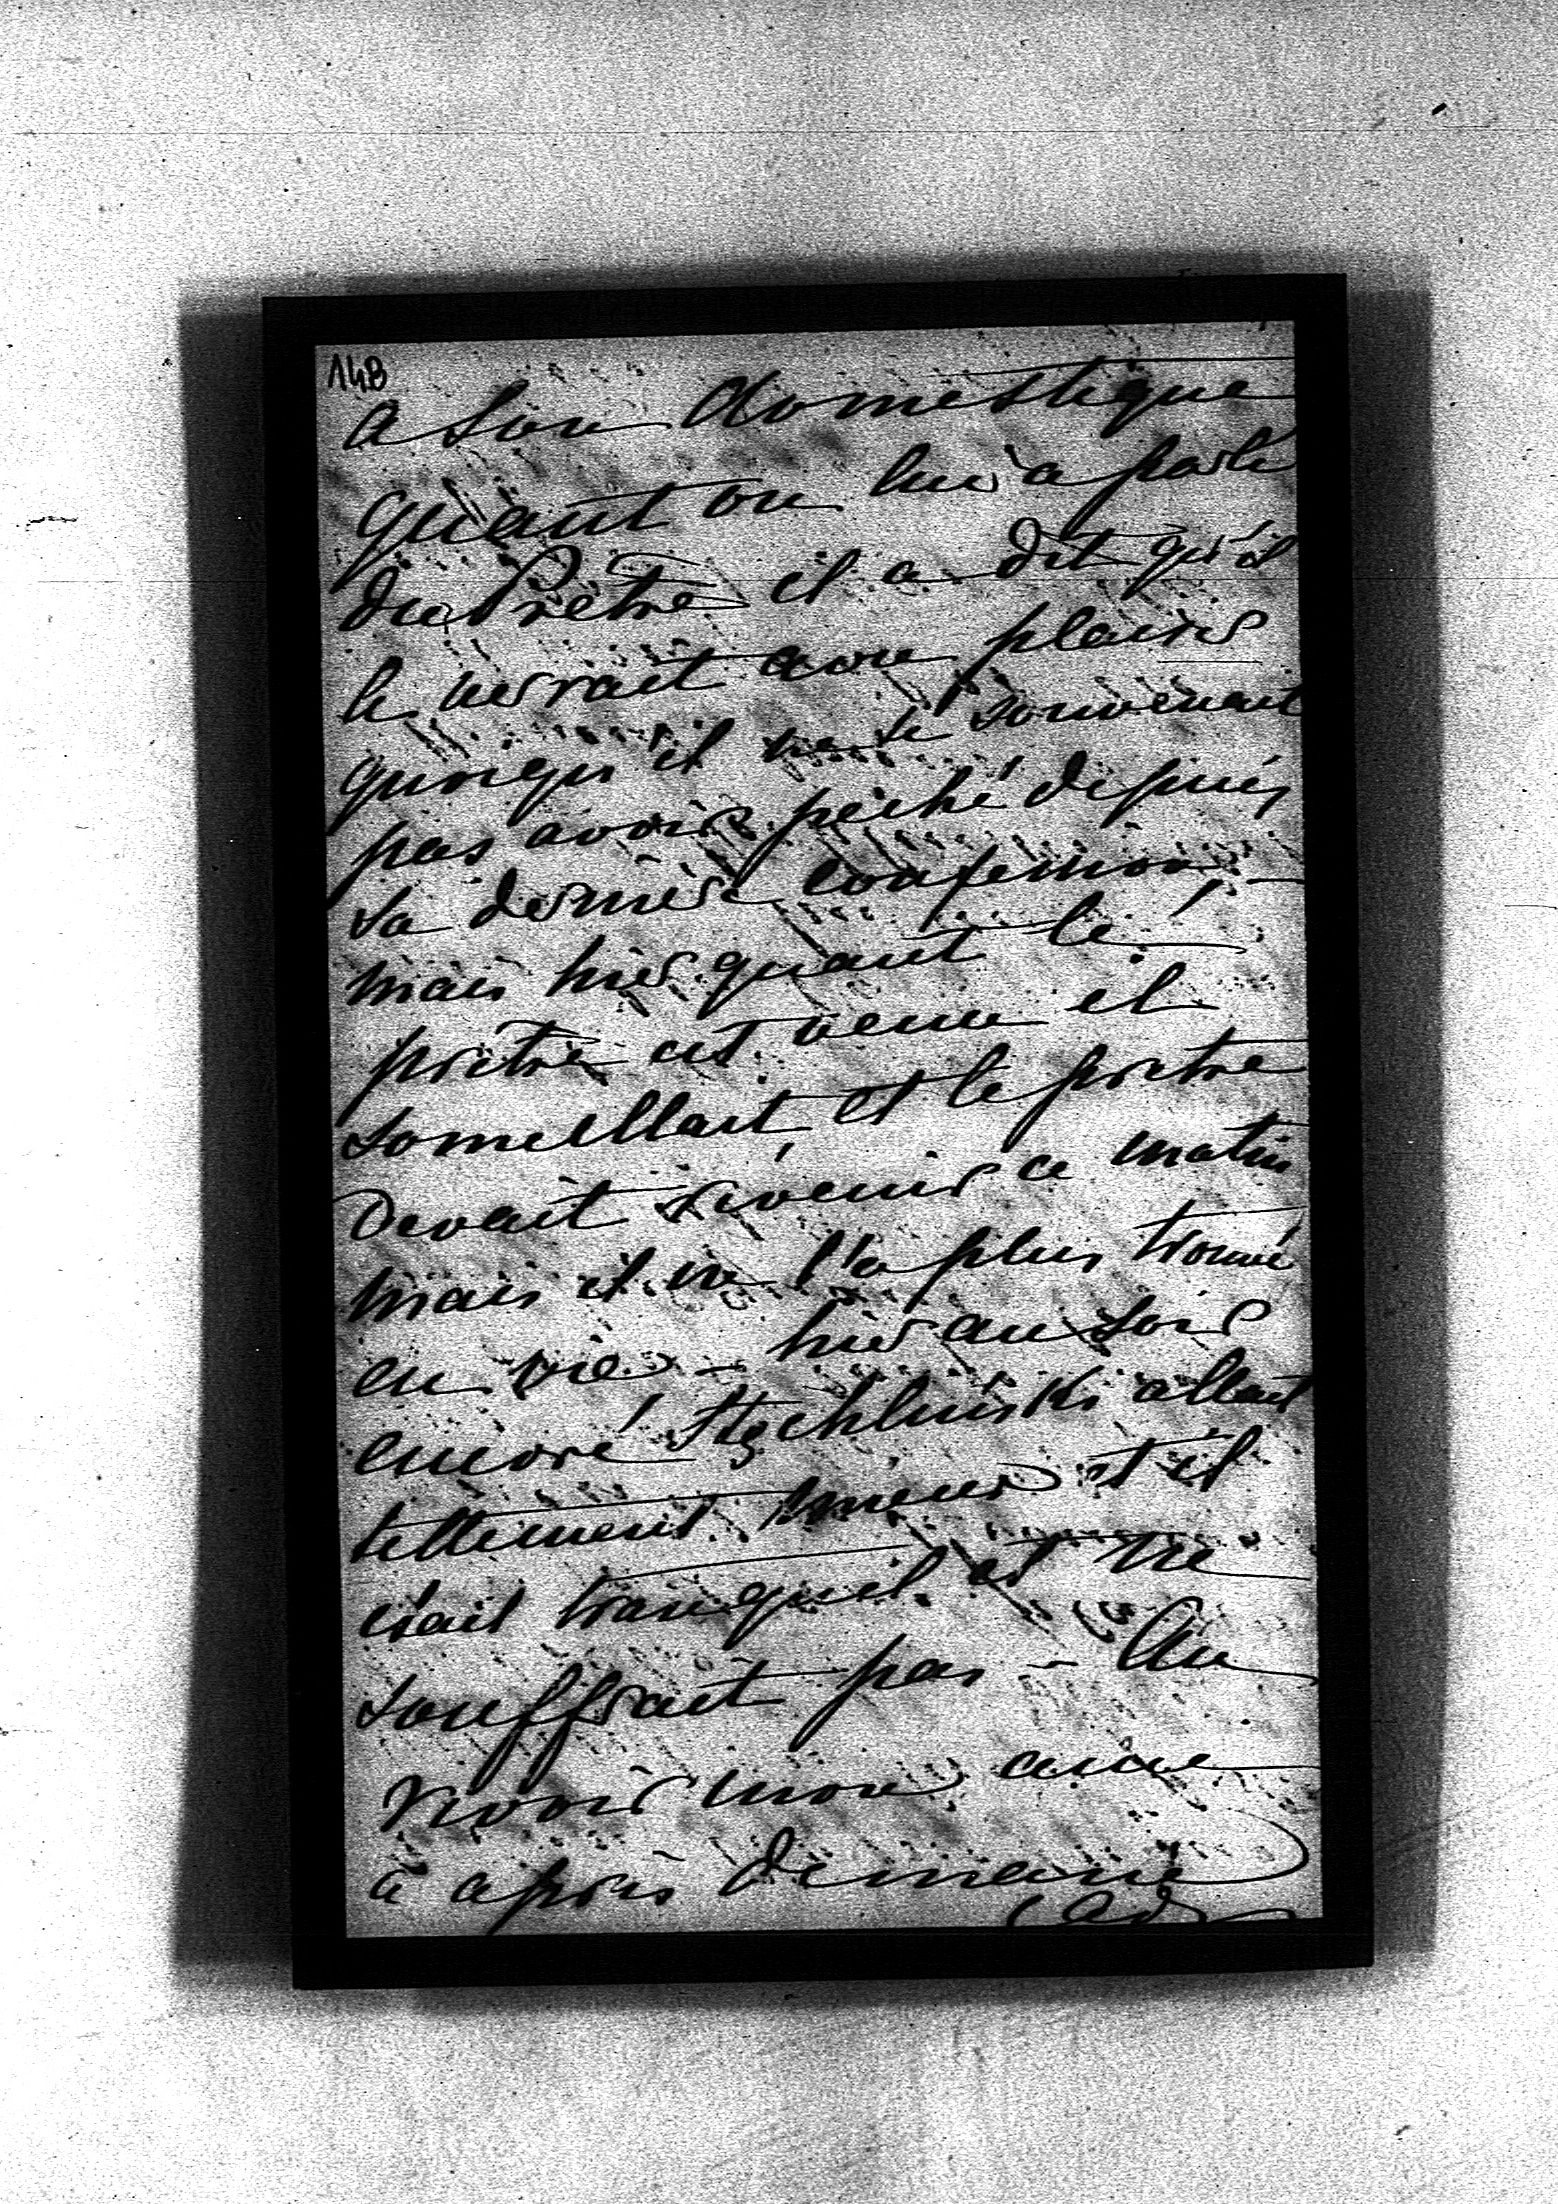 148
a son domestique
quant on lui a parlé
du Prêtre il a dit qu'il
le verrait avec plaisir
quoiqu'il ne se souvenait
pas avoir péché depuis
sa dernière confession
mais hier quant le
prêtre est venu il
someillait et le prêtre
devait révenir ce matin
mais il ne l'a plus trouvé
en vie – hier au soir
encore allait
tellement mieux et il
était tranquil et ne
souffrait pas – Au
revoir mon ame
à après demain